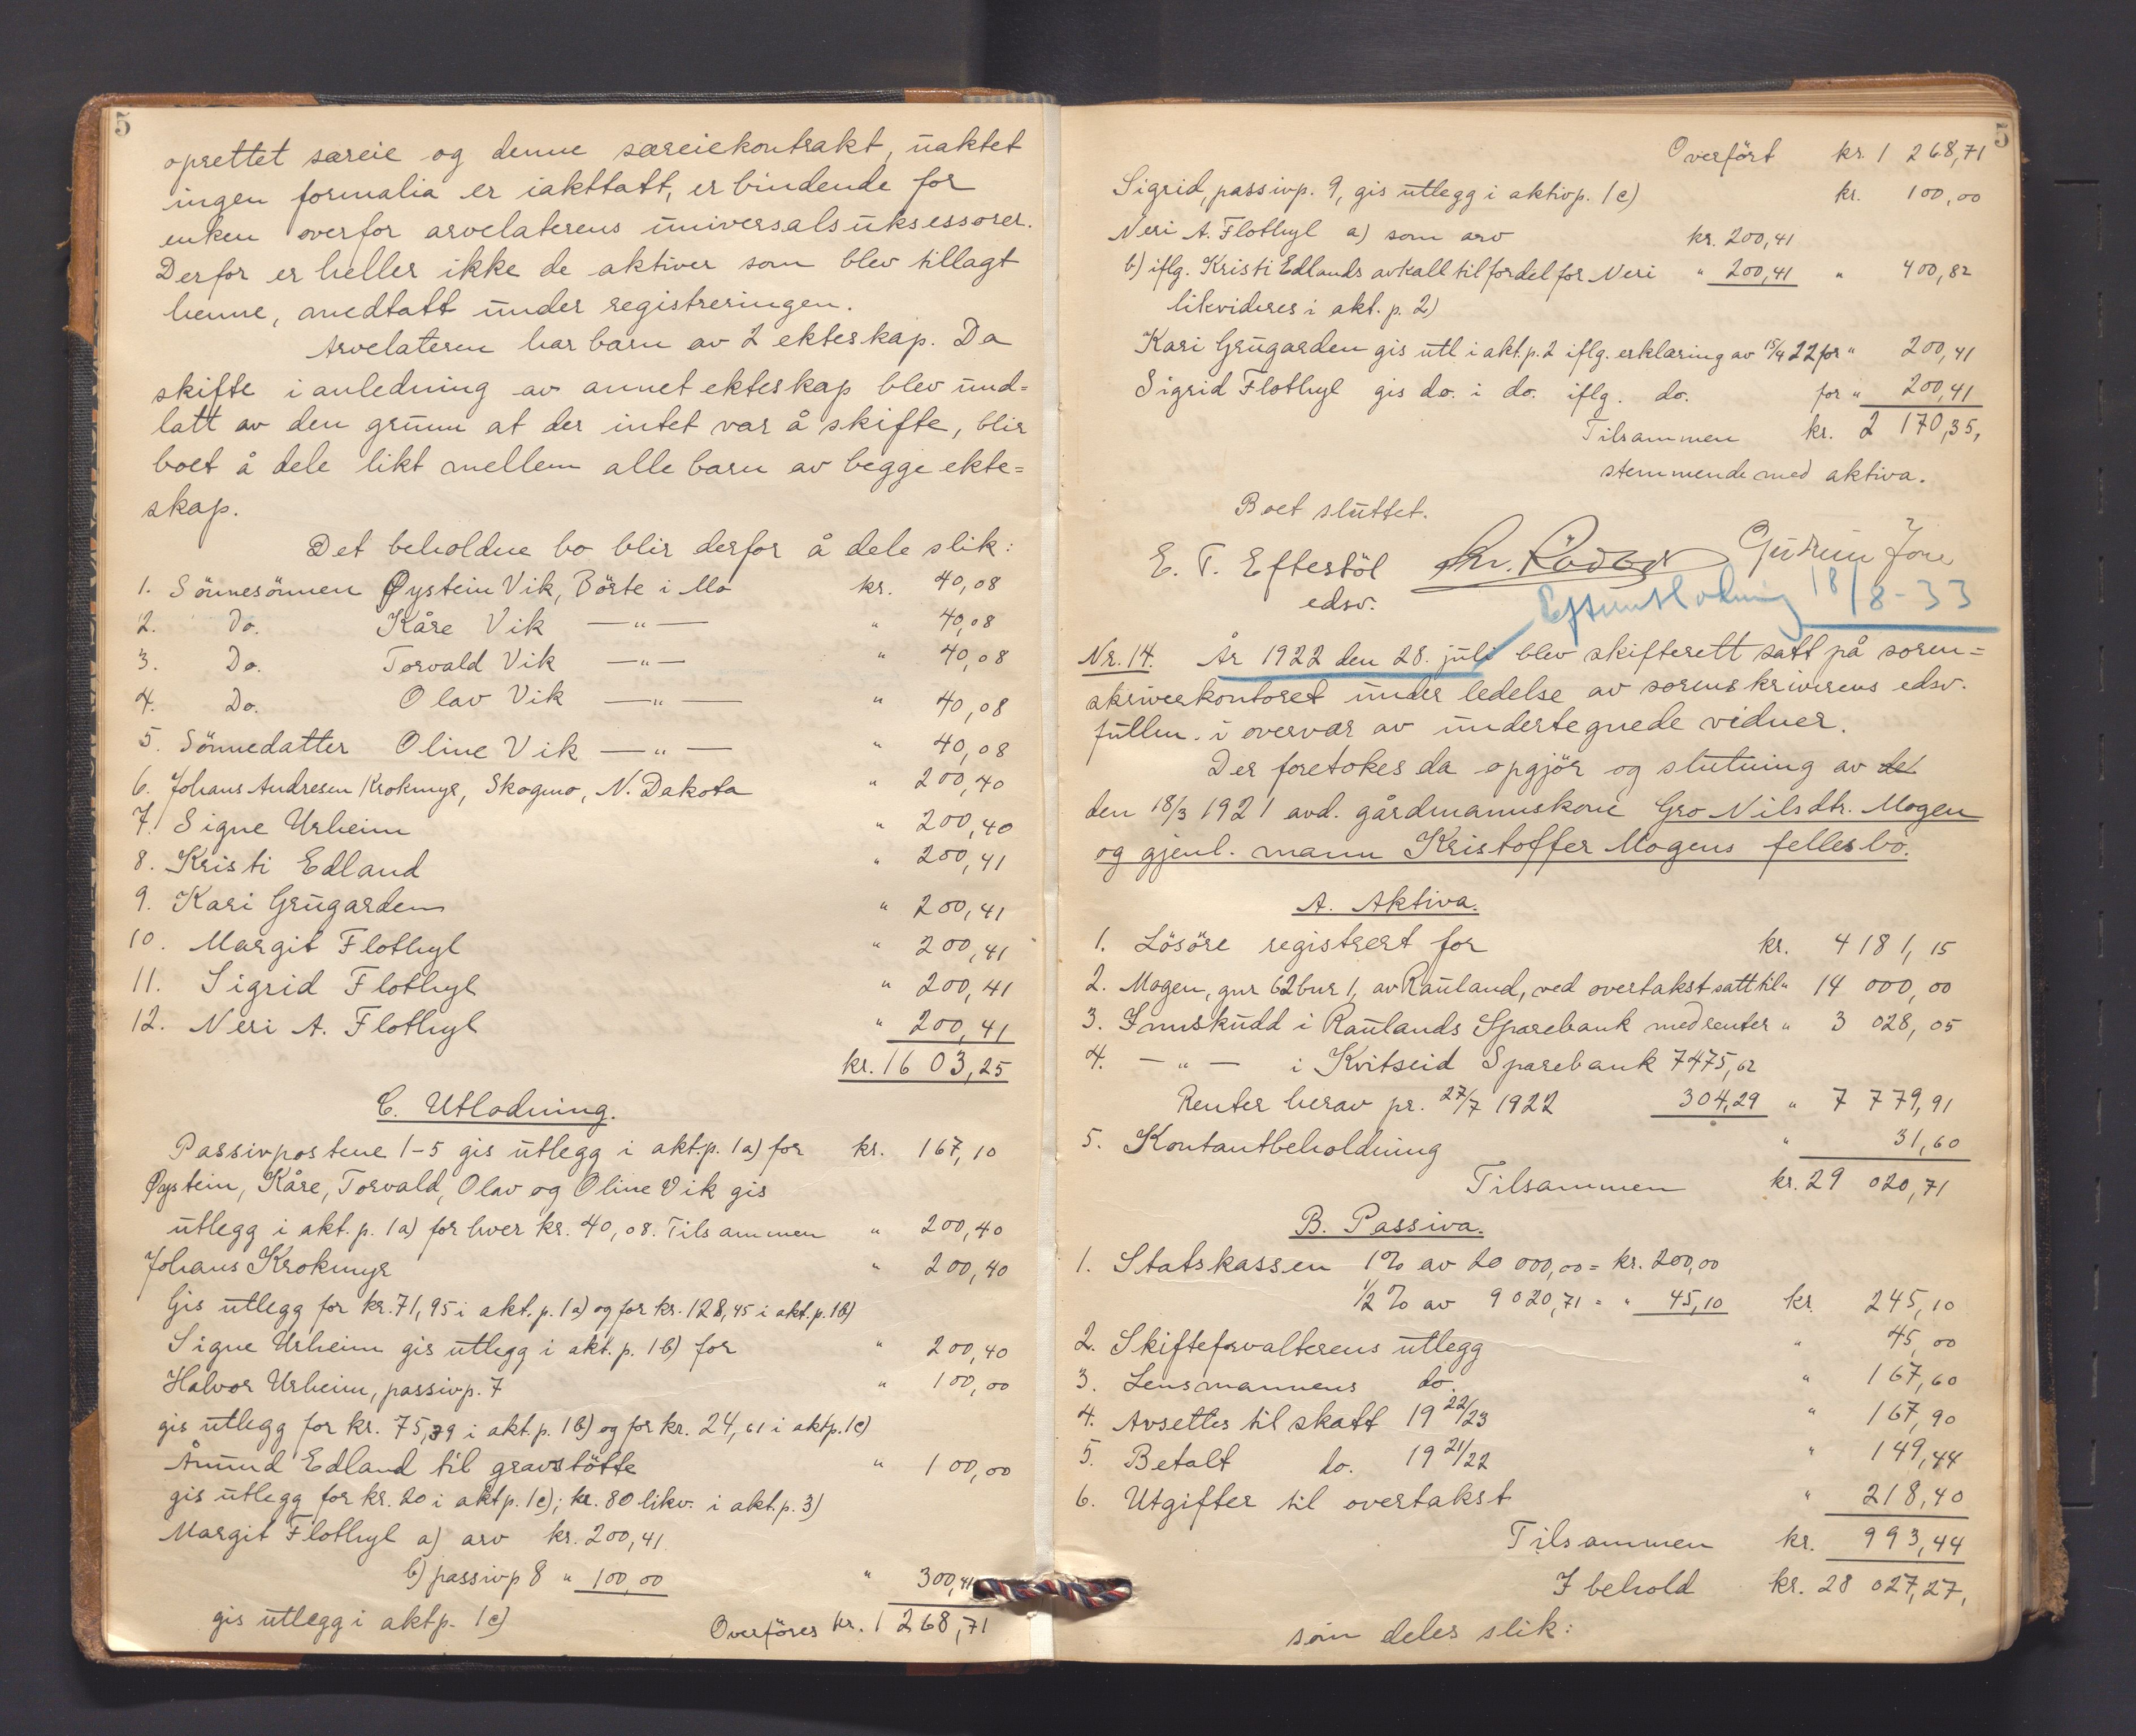 5
oprettet særeie og denne særeiekontrakt, uaktet
ingen formalia er iakttatt, er bindende for
enken overfor arvelaterens universalsuksessorer.
Derfor er heller ikke de aktiver som blev tillagt
henne, medtatt under registreringen.
Arvelateren har barn av 2 ekteskap. Da
skifte i anledning av annet ekteskap blev und=
latt av den grunn at der intet var å skifte, blir
boet å dele likt mellem alle barn av begge ekte=
skap.
Det beholdne bo blir derfor å dele slik:
1. Sönnesönnen Øystein Vik, Börte i Mo kr. 40,08
2. Do. Kåre Vik —"— " 40,08
3. Do. Torvald Vik —"— " 40,08
4. Do. Olav Vik —"— " 40,08
5. Sönnedatter Oline Vik —"— " 40,08
6. Johans Andresen Krokmyr, Skogmo, N. Dakota " 200,40
7. Signe Urheim " 200,40
8. Kristi Edland " 200,41
9. Kari Grugarden " 200,41
10. Margit Flothyl " 200,41
11. Sigrid Flothyl " 200,41
12. Neri A. Flothyl " 200,41
kr. 1603,25
C. Utlodning.
Passivpostene 1-5 gis utlegg i akt.p. 1a) for kr. 167,10
Øystein, Kåre, Torvald, Olav og Oline Vik gis
utlegg i akt. p. 1a) for hver kr. 40,08. Tilsammen " 200,40
Johans Krokmyr " 200,40
Gis utlegg for kr. 71,95 i akt. p. 1a) og for kr. 128,45 i akt. p. 1b)
Signe Urheim gis utlegg i akt. p. 1b) for " 200,40
Halvor Urheim, passivp. 7 " 100,00
gis utlegg for kr. 75,39 i akt. p. 1b) og for kr. 24,61 i aktp. 1c)
Åmund Edland til gravstötte " 100,00
gis utlegg for kr. 20 i aktp. 1c); kr. 80 likv. i akt. p. 3)
Margit Flothyl a) arv kr. 200,41
b) passivp 8 " 100,00 " 300,41
gis utlegg i aktp. 1c)
Overföres kr. 1 268,71
5
Overfört kr. 1 268,71
Sigrid, passivp. 9, gis utlegg i aktivp. 1c) kr. 100,00
Neri A. Flothyl a) som arv kr. 200,41
b) iflg. Kristi Edlands avkall til fordel for Neri " 200,41 " 400,82
likvideres i akt. p. 2)
Kari Grugarden gis utl i akt. p. 2 iflg. erklæring av 15/4 22 for " 200,41
Sigrid Flothyl gis do. i do. iflg. do. for " 200,41
Tilsammen kr. 2 170,35,
stemmende med aktiva.
Boet sluttet.
E. T. Eftestöl
edsv.
Gudrun Jore
18/8-33
Nr. 14. År 1922 den 28. juli blev skifterett satt på soren=
skriverkontoret under ledelse av sorenskriverens edsv.
fullm. i overvær av undertegnede vidner.
Der foretokes da opgjör og slutning av det
den 18/3 1921 avd. gårdmannskone Gro Nilsdtr. Mogen
og gjenl. mann Kristoffer Mogens fellesbo.
A. Aktiva.
1. Lösöre registrert for kr. 4181,15
2. Mogen, gnr 62 bnr 1, av Rauland, ved overtakst satt til " 14 000,00
3. Innskudd i Raulands Sparebank med renter " 3 028,05
4. —"— i Kvitseid Sparebank 7475,62
Renter herav pr. 27/7 1922 304,29 " 7 779,91
5. Kontantbeholdning " 31,60
Tilsammen kr. 29 020,71
B. Passiva.
1. Statskassen 1% av 20 000,00 = kr. 200,00
1/2 % av 9 020,71 = " 45,10 kr. 245,10
2. Skifteforvalterens utlegg " 45,00
3. Lensmannens do. " 167,60
4. Avsettes til skatt 19 22/23 " 167,90
5. Betalt do. 19 21/22 " 149,44
6. Utgifter til overtakst " 218,40
Tilsammen kr. 993,44
I behold kr. 28 027,27,
som deles slik: